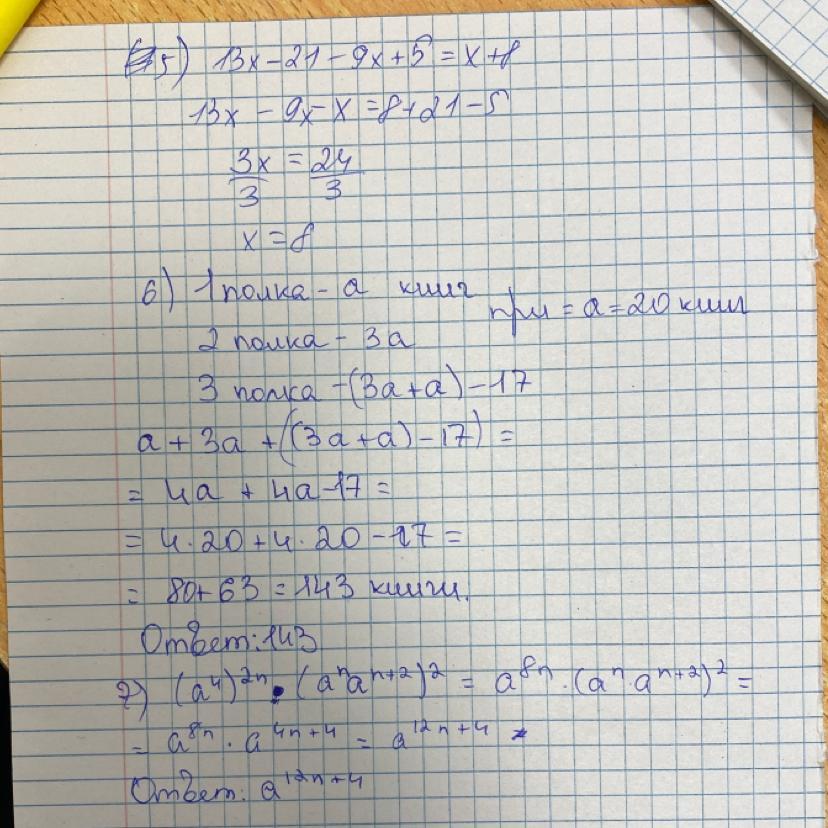 5) 13x - 21 - 9x + 5 = x + 8
13x - 9x - x = 8 + 21 - 5
3x/3 = 24/3
x = 8
6) 1 полка - a книг при = a = 20 книг
2 полка - 3a
3 полка - (3a + a) - 17
a + 3a + ((3a + a) - 17) =
= 4a + 4a - 17 =
= 4 · 20 + 4 · 20 - 17 =
= 80 + 63 = 143 книги.
Ответ: 143
7) (a⁴)²ⁿ · (aⁿaⁿ⁺²)² = a⁸ⁿ · (aⁿ · aⁿ⁺²)² =
= a⁸ⁿ · a⁴ⁿ⁺⁴ = a¹²ⁿ⁺⁴
Ответ: a¹²ⁿ⁺⁴